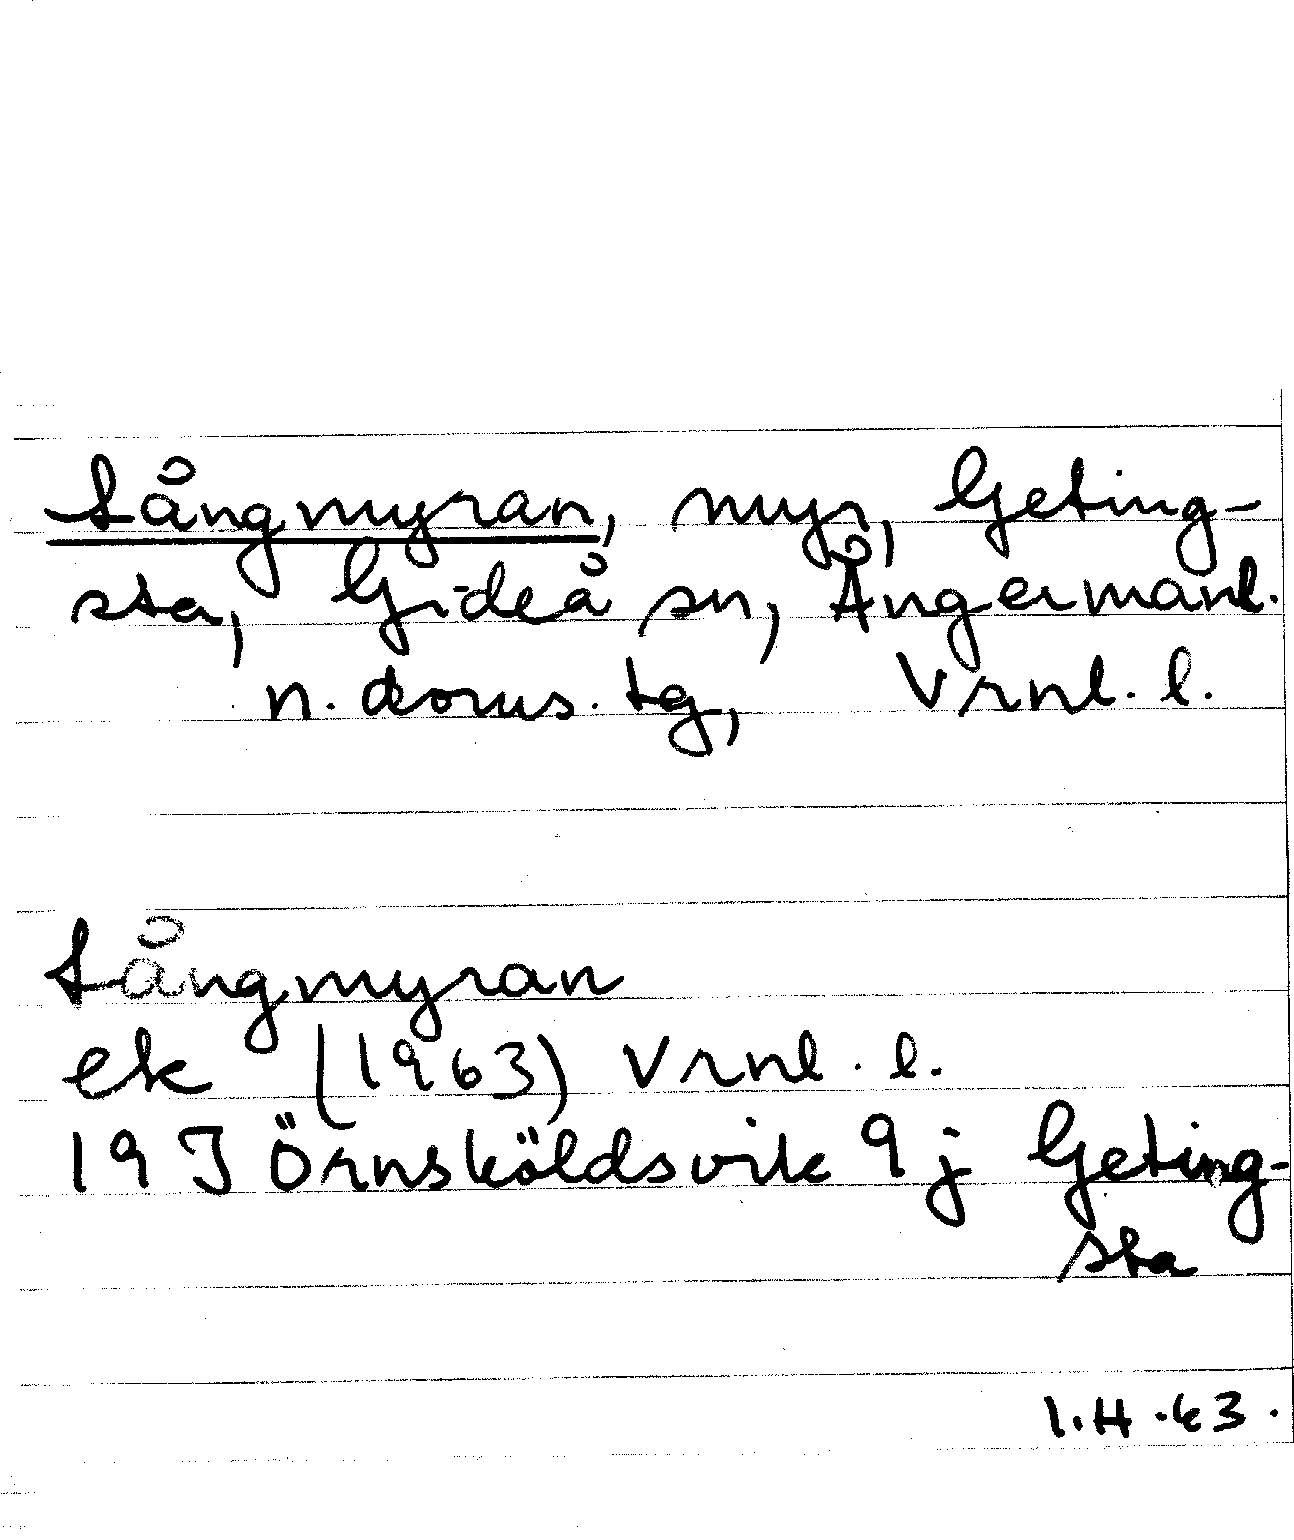 Långmyran, myr, Geting-
sta, Gideå sn, Ångermanl.
n. doms. tg, Vrnl. l.
Långmyran
ek (1963) Vrnl. l.
19 J Örnsköldsvik 9 j Geting-
sta
I.H.-63.